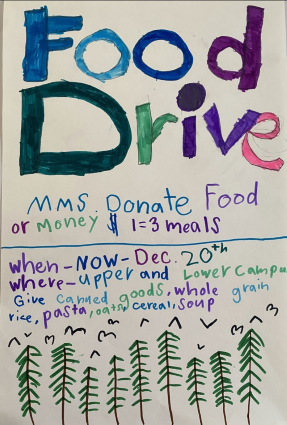 Food
Drive
MMS. Donate Food
or money $ 1=3 meals
when-NOW-Dec. 20th
where-upper and Lower campu
Give canned goods, whole grain
rice, pasta, oats, cereal, soup